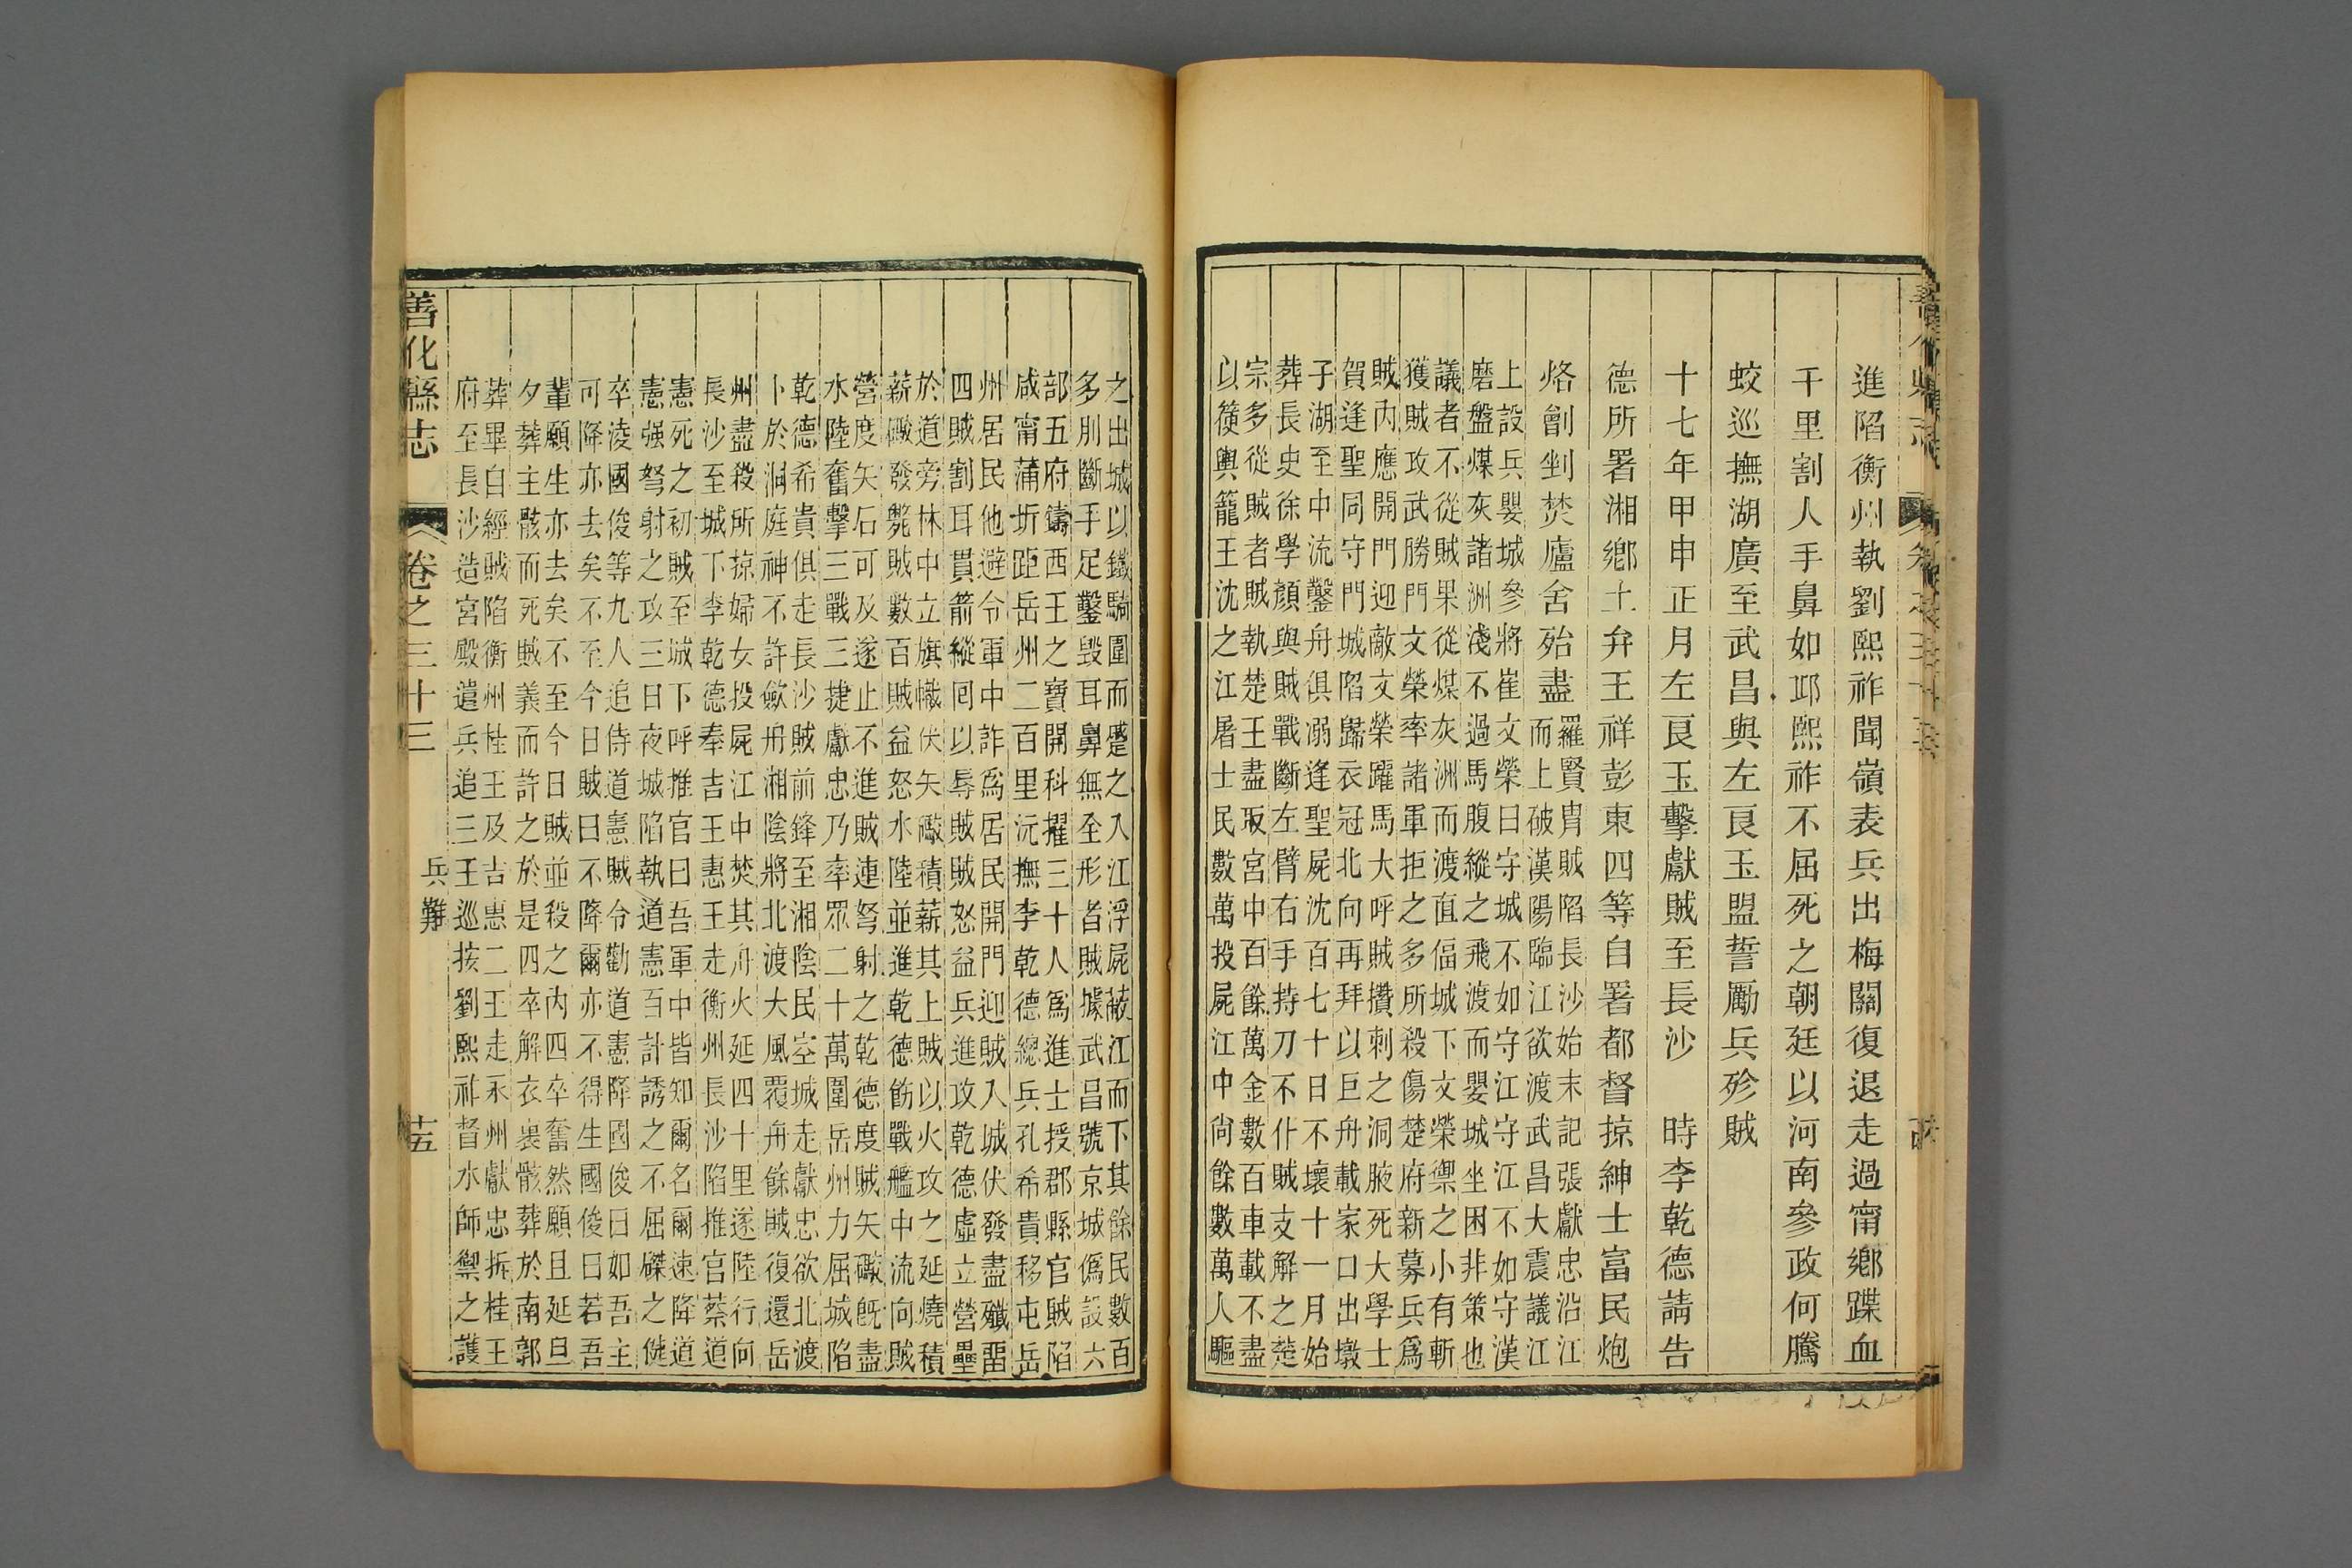 進陷衡州執劉熙祚聞嶺表兵出梅關復退走過甯鄉蹀血
千里割人手鼻如邛熙祚不屈死之朝廷以河南參政何騰
蛟巡撫湖廣至武昌與左良玉盟誓勵兵殄賊
十七年甲申正月左良玉擊獻賊至長沙 時李乾德請告
德所署湘鄉土弁王祥彭東四等自署都督掠紳士富民炮
烙劊剉焚廬舍殆盡
羅賢胄賊陷長沙始末記張獻忠沿江
而上破漢陽臨江欲渡武昌大震議江
上設兵嬰城參將崔文榮曰守城不如守江守江不如守漢
磨盤煤灰諸洲淺不過馬腹縱之飛渡而嬰城坐困非策也
議者不從賊果從煤灰洲而渡直偪城下文榮禦之小有斬
獲賊攻武勝門文榮率諸軍拒之多所殺傷楚府新募兵爲
賊內應開門迎敵文榮躍馬大呼賊攢刺之洞腋死大學士
賀逢聖同守門城陷歸衣冠北向再拜以巨舟載家口出墩
子湖至中流鑿舟俱溺逢聖屍沈百七十日不壞十一月始
葬長史徐學顏與賊戰斷左臂右手持刀不仆賊支解之楚
宗多從賊者賊執楚王盡取宮中百餘萬金數百車載不盡
以篾輿籠王沈之江屠士民數萬投屍江中尙餘數萬人驅
之出城以鐵騎圍而蹙之入江浮屍蔽江而下其餘民數百
多刖斷手足鑿毀耳鼻無全形者賊據武昌號京城僞設六
部五府鑄西王之寶開科擢三十人爲進士授郡縣官賊陷
咸甯蒲圻距岳州二百里沅撫李乾德總兵孔希貴移屯岳
州居民他避令軍中詐爲居民開門迎賊入城伏發盡殲畱
四賊割耳貫箭縱回以辱賊賊怒益兵進攻乾德虛立營壘
於道旁林中立旗幟伏矢礮積薪其上賊以火攻之延燒積
薪礮發斃賊數百賊益怒水陸並進乾德飭戰艦中流向賊
營度矢石可及遂止不進賊連弩射之乾德度賊矢礮旣盡
水陸奮擊三戰三捷獻忠乃率眾二十萬圍岳州力屈城陷
乾德希貴俱走長沙賊前鋒至湘陰民空城走獻忠欲北渡
卜於洞庭神不許歛舟湘陰將北渡大風覆舟餘賊復還岳
州盡殺所掠婦女投屍江中焚其舟火延四十里遂陸行向
長沙至城下李乾德奉吉王惠王走衡州長沙陷推官蔡道
憲死之初賊至城下呼推官曰吾軍中皆知爾名爾速降道
憲强弩射之攻三日夜城陷執道憲百計誘之不屈磔之健
卒淩國俊等九人追侍道憲賊令勸道憲降國俊曰如吾主
可降亦去矣不至今日賊曰不降爾亦不得生國俊曰若吾
輩願生亦去矣不至今日賊並殺之內四卒奮然願且延旦
夕葬主骸而死賊義而許之於是四卒解衣裹骸葬於南郭
葬畢自經賊陷衡州桂王及吉惠二王走永州獻忠拆桂王
府至長沙造宮殿遣兵追三王巡按劉熙祚督水師禦之護
善化縣志 卷之三十三 兵難 十五